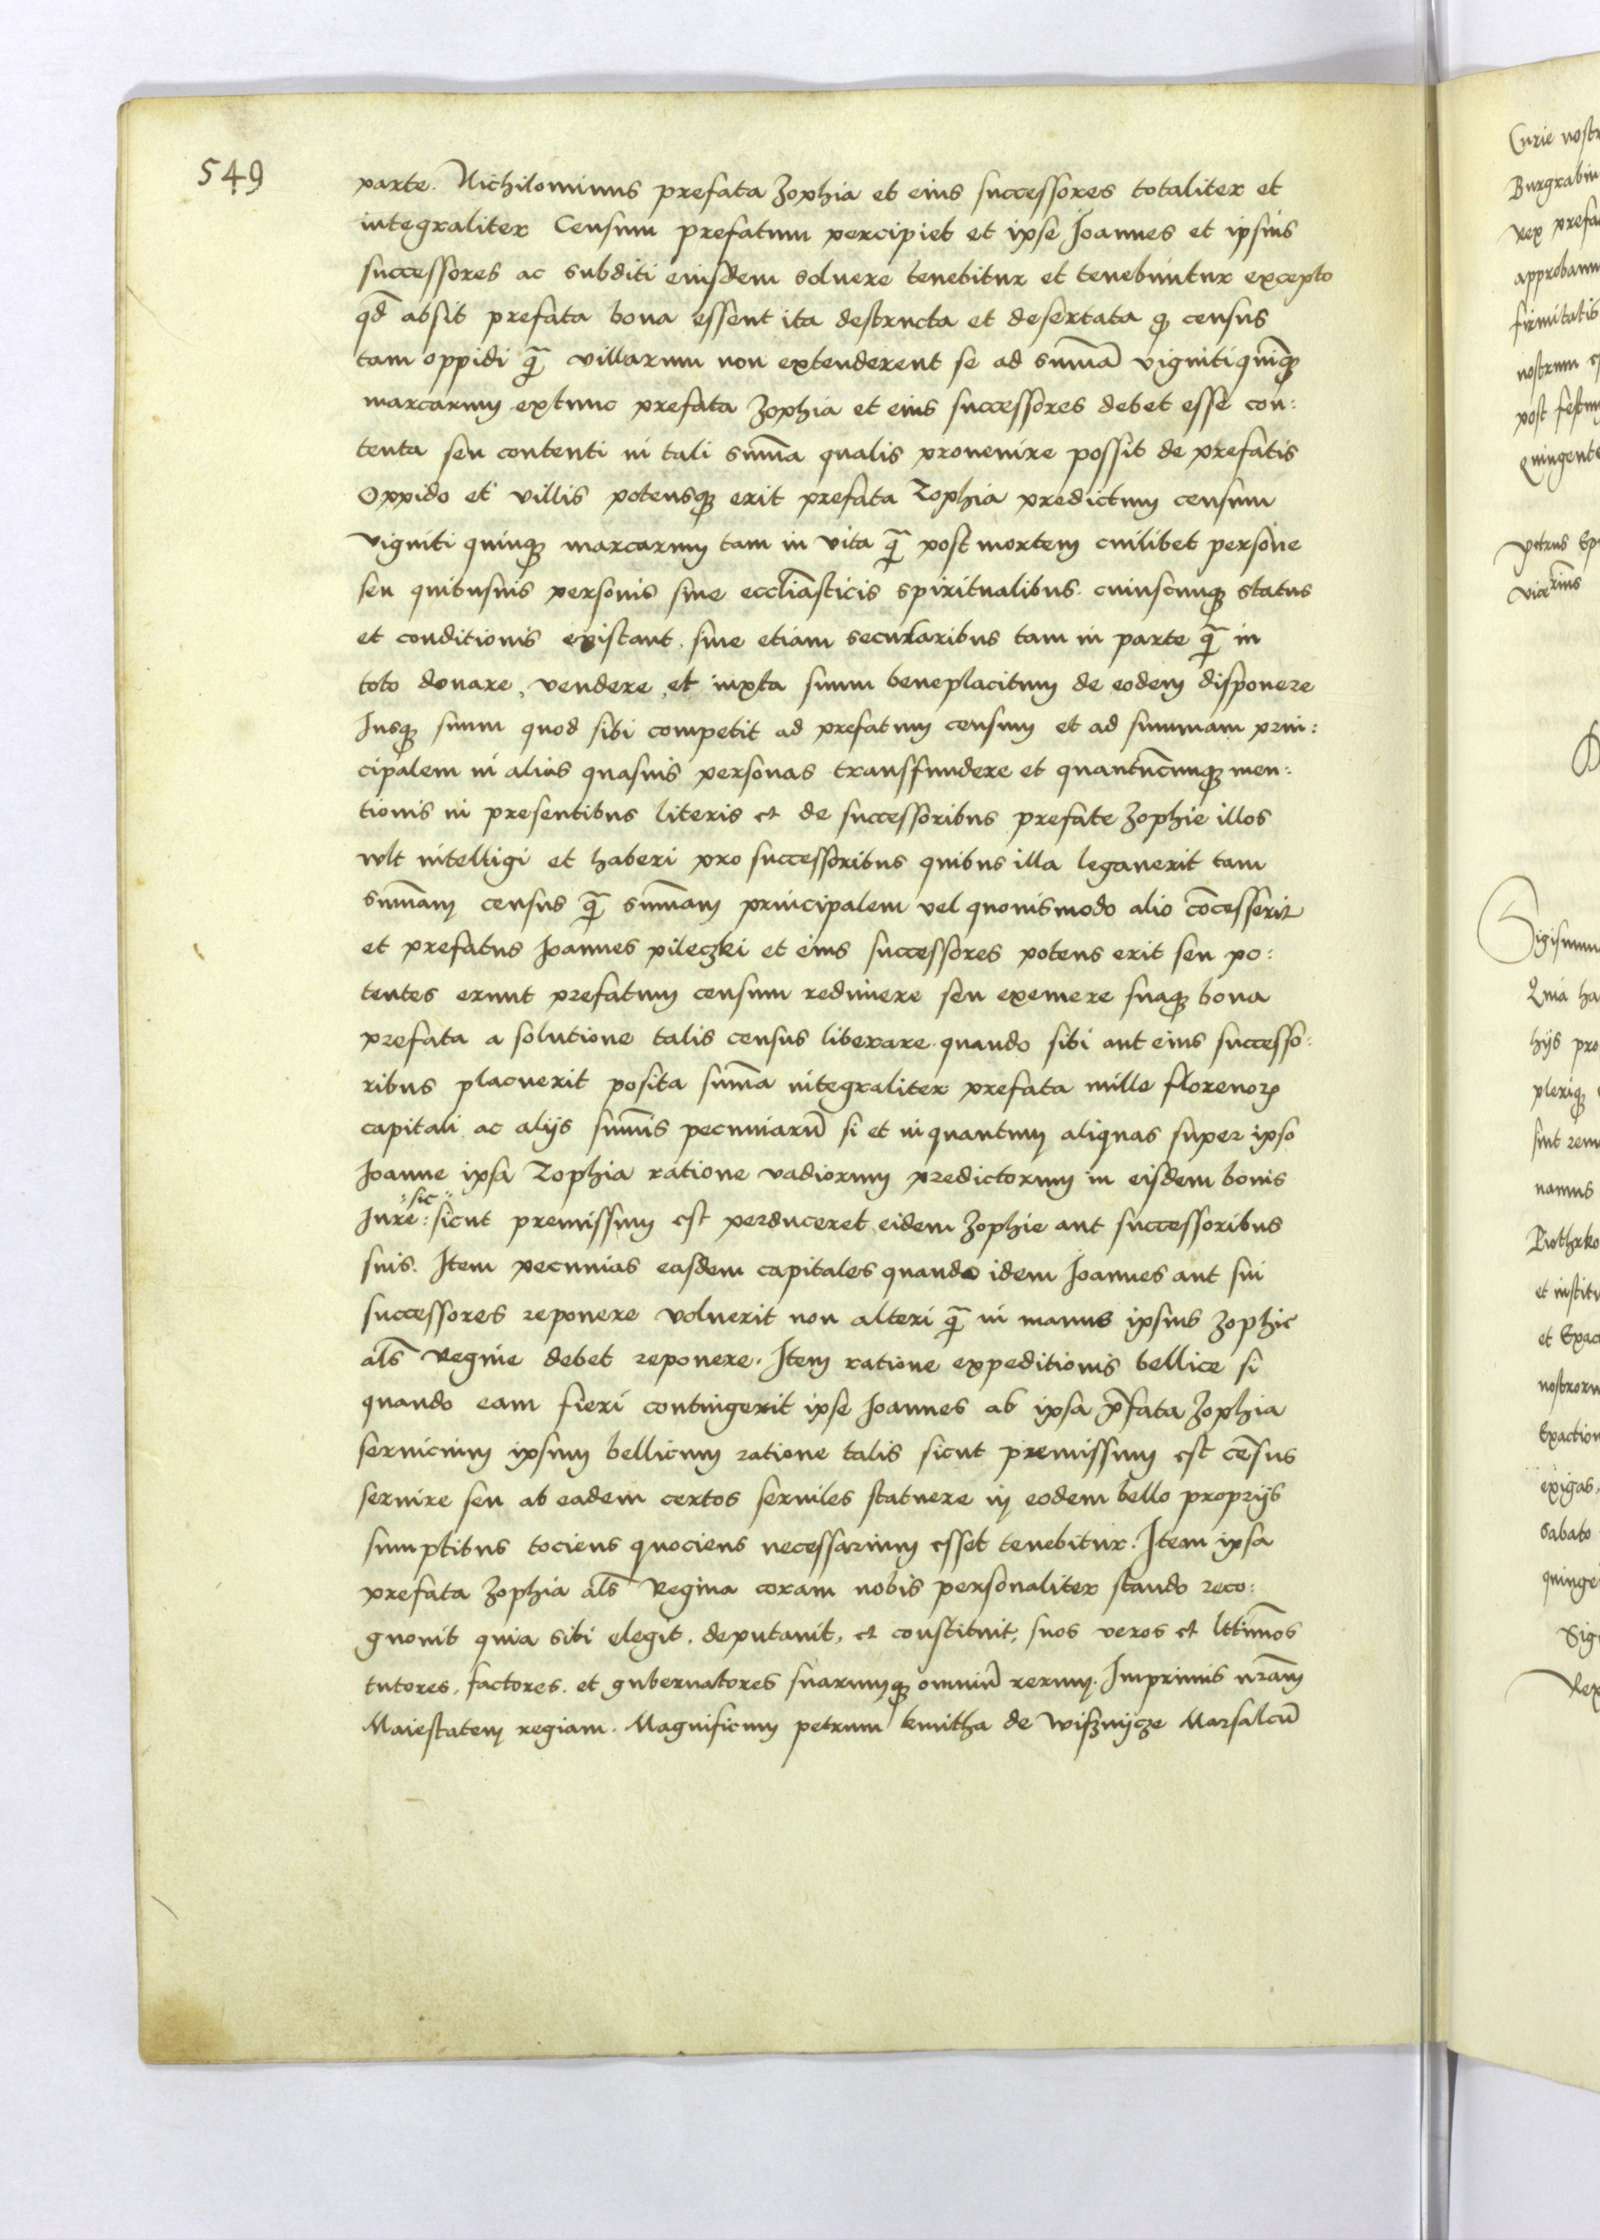 549
parte. Nichilominus prefata Zophia et eius successores totaliter et
integraliter Censum prefatum percipiet et ipse Joannes et ipsius
successores ac subditi eiusdem soluere tenebitur et tenebuntur excepto
qd̄ absit prefata bona essent ita destructa et desertata q̄ census
tam oppidi q̄ villarum non extenderent se ad sum̄a vigintiquinq̄
marcarum extunc prefata Zophia et eius successores debet esse con:
tenta seu contenti in tali sum̄a qualis prouenire possit de prefatis
Oppido et villis potensq̄ erit prefata Zophia predictum censum
viginti quinq̄ marcarum tam in vita q̄ post mortem cuilibet persone
seu quibusuis personis siue eccl̄iasticis spiritualibus. cuiuscunq̄ status
et conditionis existant. siue etiam secularibus tam in parte q̄ in
toto donare, vendere, et iuxta suum beneplacitum de eodem disponere
Jusq̄ suum quod sibi competit ad prefatum censum et ad summam prin:
cipalem in alias quasuis personas transfundere et quantūcunq̄ men:
tionis in presentibus literis et de successoribus prefate Zophie illos
vult intelligi et haberi pro successoribus quibus illa legauerit tam
sum̄am census q̄ sum̄am principalem vel quouismodo alio cōcesserit
et prefatus Joannes pileczki et eius successores potens erit seu po:
tentes erunt prefatum censum redimere seu exemere suaq̄ bona
prefata a solutione talis census liberare. quando sibi aut eius successo:
ribus placuerit posita sum̄a integraliter prefata mille florenoꝝ
capitali ac alijs sum̄is pecuniarū si et in quantum aliquas super ipso
Joanne ipsa Zophia ratione vadiorum predictorum in eisdem bonis
"sic"
Jure: sicut premissum est perduceret eidem Zophie aut successoribus
suis. Item pecunias easdem capitales quando idem Joannes aut sui
successores reponere voluerit non alteri q̄ in manus ipsius Zophie
al̄s Regine debet reponere. Item ratione expeditionis bellice si
quando eam fieri contingerit ipse Joannes ab ipsa p̄fata Zophia
seruicium ipsum bellicum ratione talis sicut premissum est cēsus
seruire seu ab eadem certos seruiles statuere in eodem bello proprijs
sumptibus tociens quociens necessarium esset tenebitur. Item ipsa
prefata Zophia al̄s Regina coram nobis personaliter stando reco:
gnouit quia sibi elegit, deputauit, et constituit, suos veros et lttimōs
tutores, factores, et gubernatores suarumq̄ omniū rerum. Imprimis nr̄am
Maiestatem regiam. Magnificum petrum kmitha de wisznijcze Marsalcū
Curie nostr
Burgrabiu
Rex prefa
approbam
firmitatis
nostrum
post festu
quingente
petrus Ep
Sigismun
Quia ha
hijs pro
pleriq̄
sint rem
namus
Piothrko
et institu
et Exac
nostroru
Exaction
exigas,
Sabato
quinge
Sig
Rex